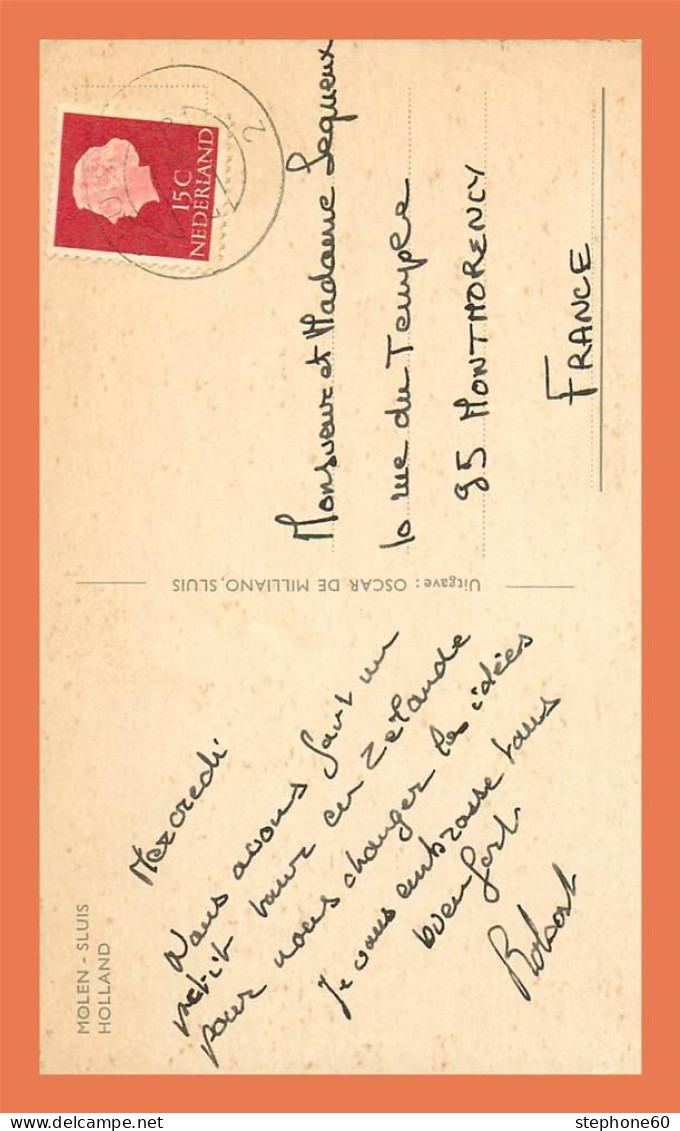 MOLEN - SLUIS
HOLLAND
Mercredi
Nous avons fait un
petit tour en Zélande
pour nous changer les idées
Je vous embrasse tous
bien fort
Robert
Uitgave: OSCAR DE MILLIANO, SLUIS
15C
NEDERLAND
2
Monsieur et Madame Lequeux
10 rue du Temple
95 MONTMORENCY
FRANCE
stephone60